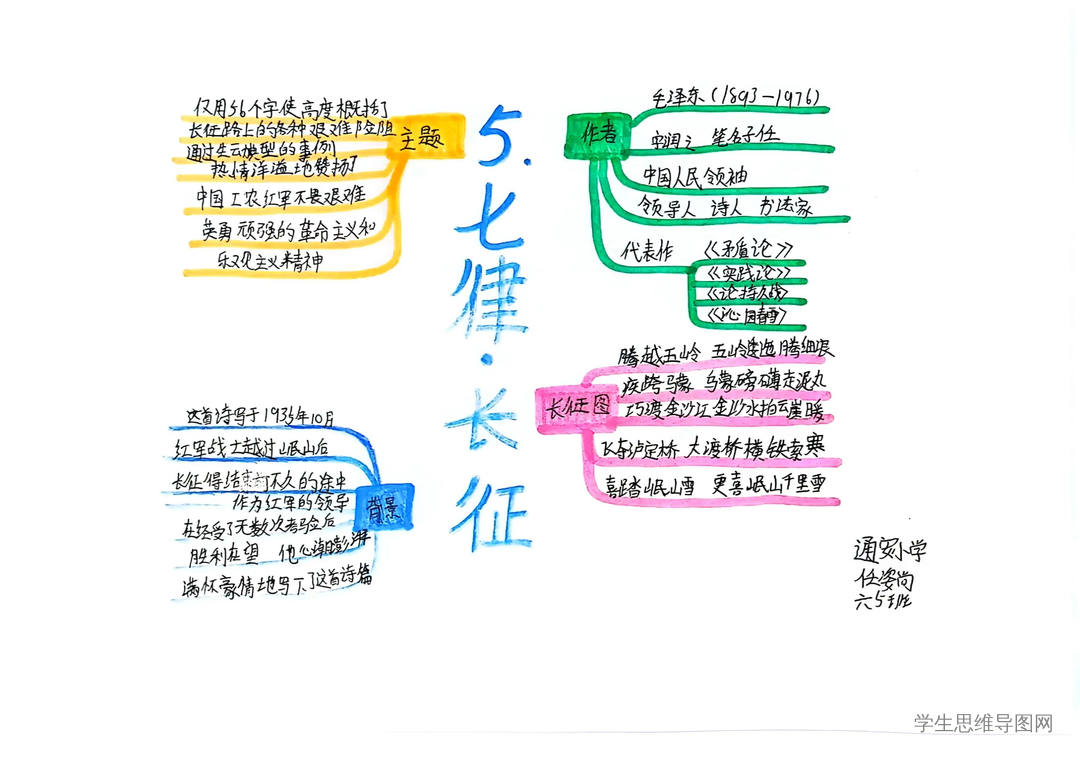 5.七律·长征
主题
仅用56个字使高度概括了
长征路上的各种艰难险阻
通过生云典型的事例
热情洋溢地赞扬了
中国工农红军不畏艰难
英勇顽强的革命主义和
乐观主义精神
作者
毛泽东(1893—1976)
字润之 笔名子任
中国人民领袖
领导人 诗人 书法家
代表作
《矛盾论》
《实践论》
《论持久战》
《沁园春雪》
长征图
腾越五岭 五岭逶迤腾细浪
疾跨乌蒙 乌蒙磅礴走泥丸
巧渡金沙江 金沙水拍云崖暖
飞夺泸定桥 大渡桥横铁索寒
喜踏岷山雪 更喜岷山千里雪
背景
这首诗写于1935年10月
红军战士越过岷山后
长征得结束前不久的途中
作为红军的领导
在经受了无数次考验后
胜利在望 他心潮澎湃
满怀豪情地写下了这首诗篇
通安小学
任姿尚
六5班
学生思维导图网